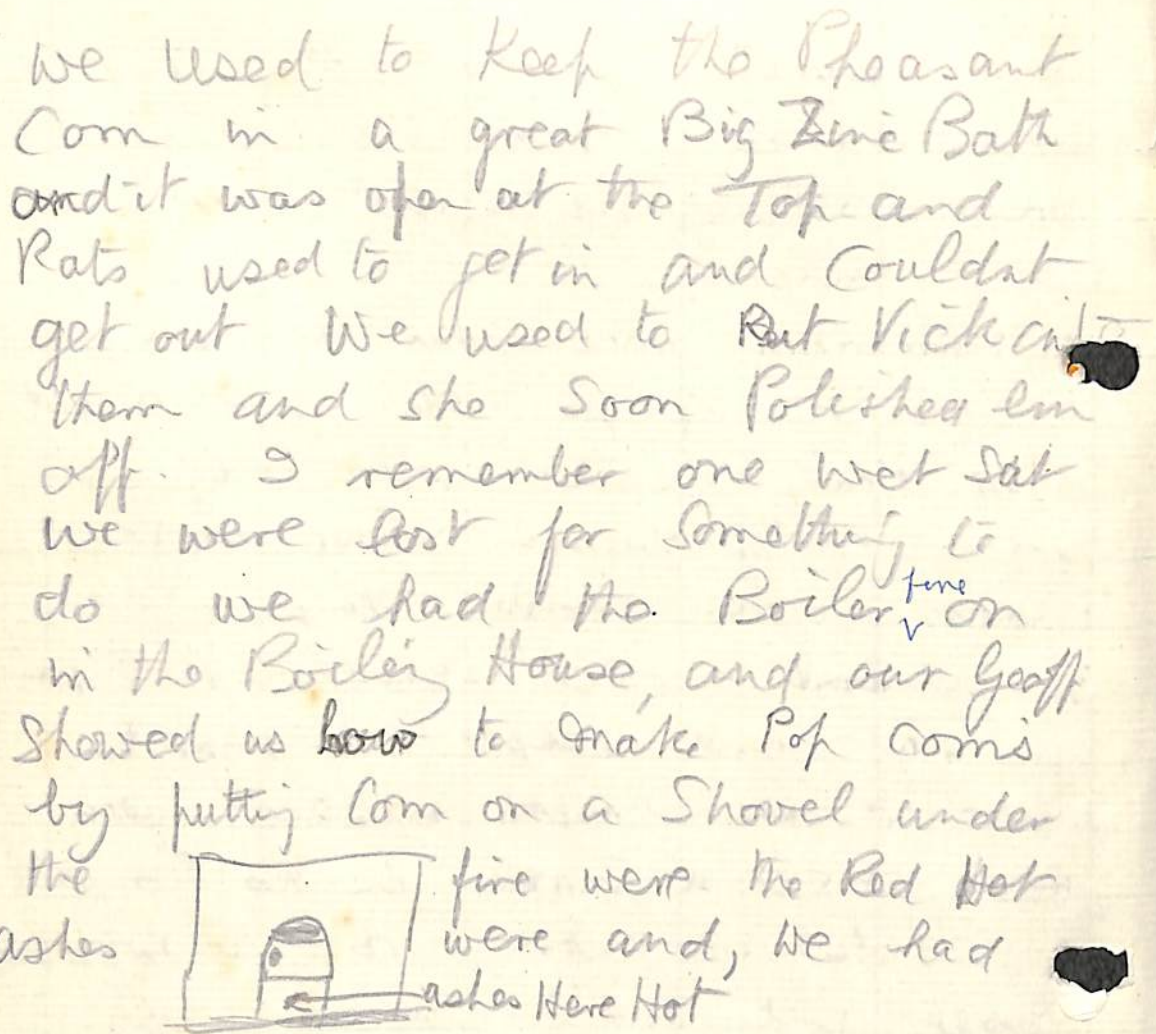 we used to Keep the Pheasant
Corn in a great Big Zinc Bath
and it was open at the Top and
Rats used to get in and Couldnt
get out We used to Put Vick in to
them and she Soon Polished em
off. I remember one wet Sat
we were lost for Something to
do we had the Boiler fire on
in the Boiling House, and our Geoff
Showed us how to make Pop corns
by putting Corn on a Shovel under
the fire were the Red Hot
ashes were and, we had
ashes Here Hot